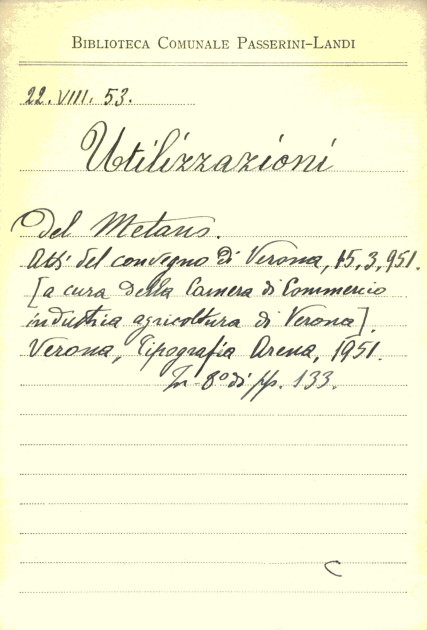 BIBLIOTECA COMUNALE PASSERINI-LANDI
22.VIII.53.
Utilizzazioni
del Metano.
Atti del convegno di Verona, 15.3.951.
[a cura della Camera di Commercio
industria agricoltura di Verona].
Verona, Tipografia Arena, 1951.
In 8° di pp. 133.
C